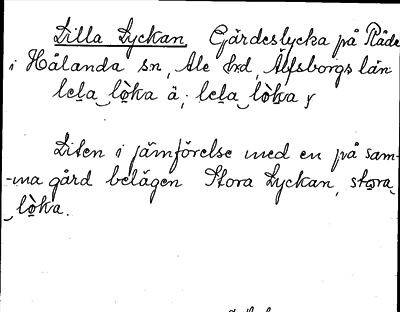 Lilla Lyckan Gärdeslycka på Råde
i Hålanda sn, Ale hd, Älfsborgs län
lela lòka ä, lela lòka y
Liten i jämförelse med en på sam-
-ma gård belägen Stora Lyckan, stora
lòka.